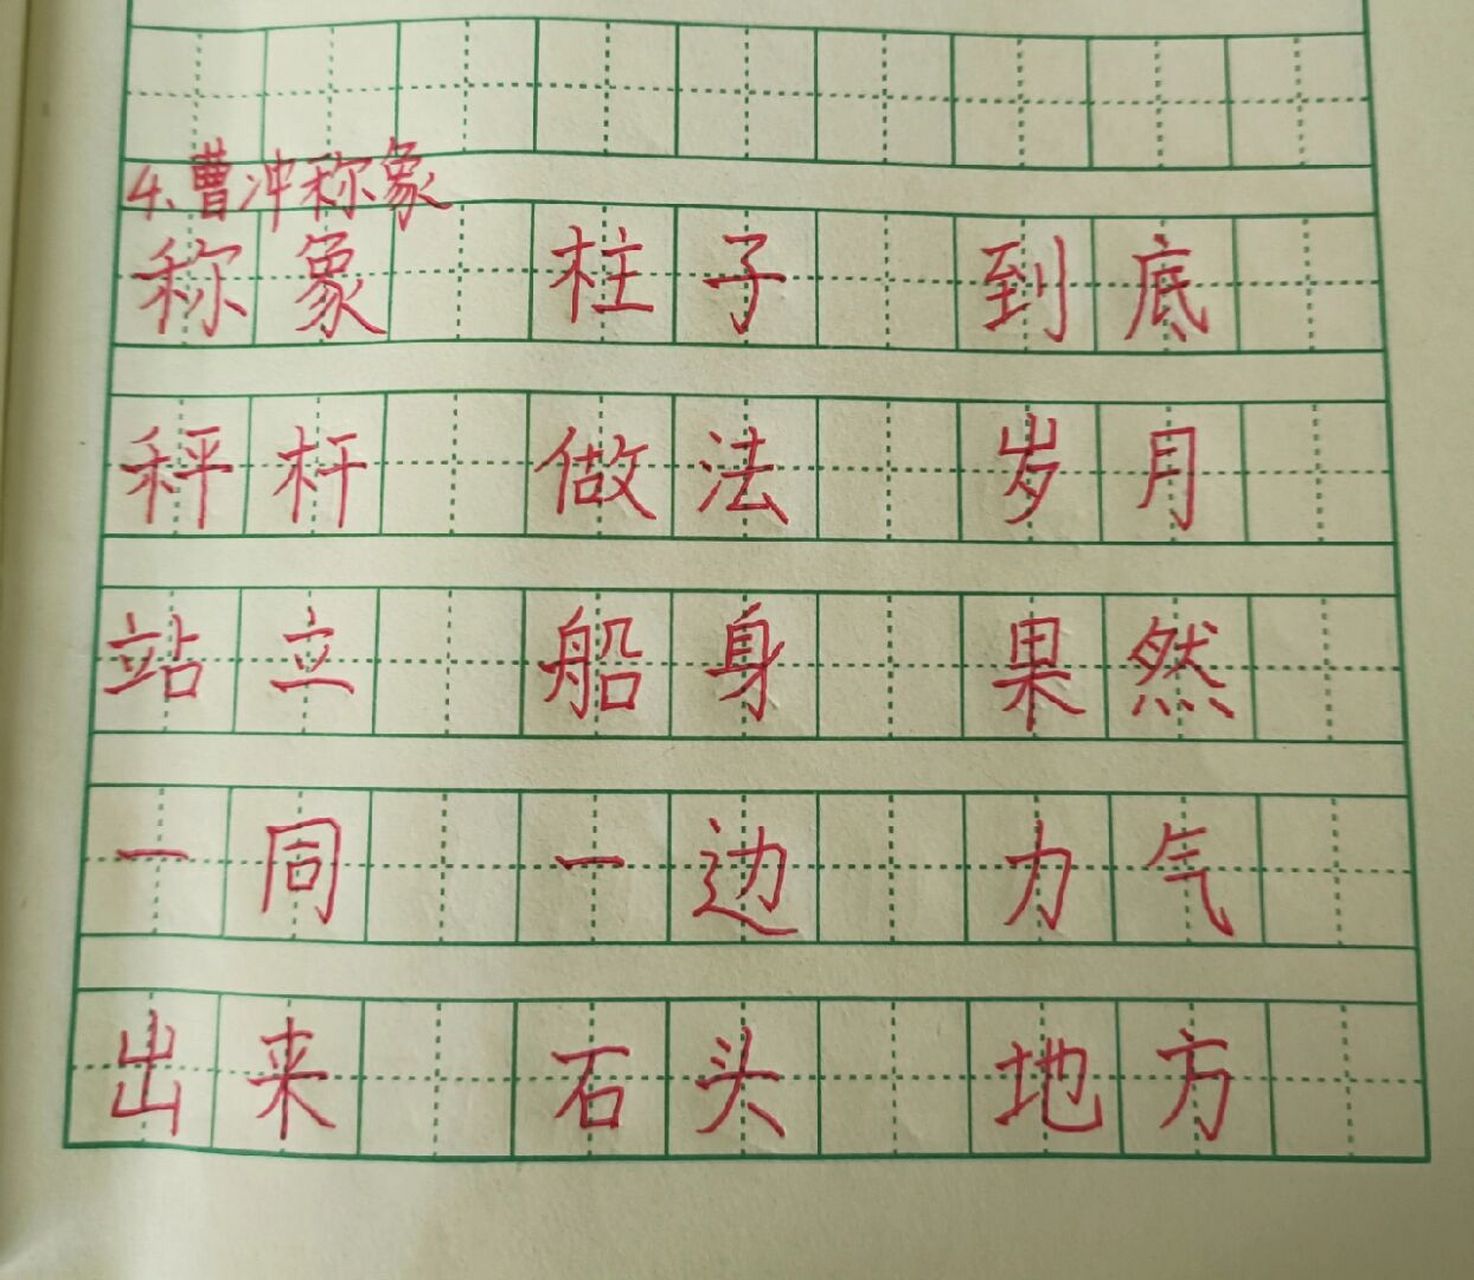 4、曹冲称象
称象 柱子 到底
秤杆 做法 岁月
站立 船身 果然
一同 一边 力气
出来 石头 地方